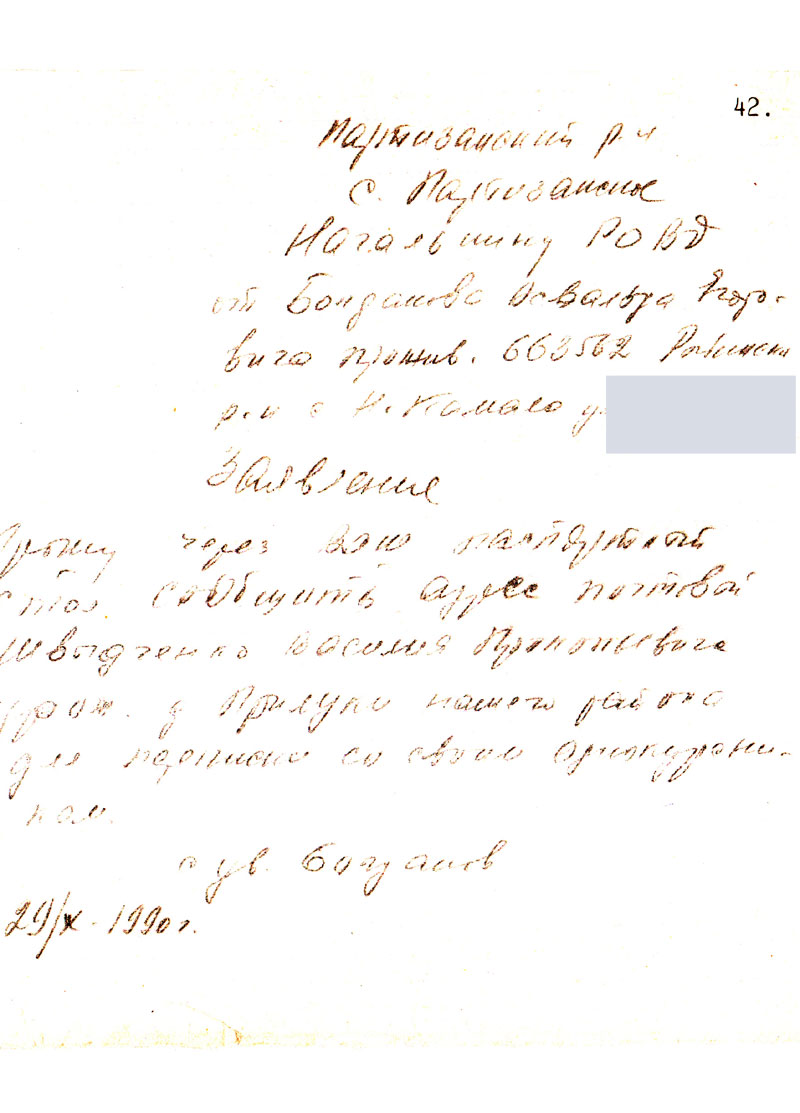 42.
Партизанский р-н
с. Партизанское
Начальнику РОВД
от Богданова Освальда Егоро-
вича прожив. 663562 Рыбинский
р-н с Н. Камала
Заявление
Прошу через Ваш паспортный
стол сообщить адрес почтовой
Швыдченко Василия Прокопьевича
урож. д Прилуки нашего района
для переписки со своим однокурсни-
ком.
с ув. Богданов
29/X-1990г.